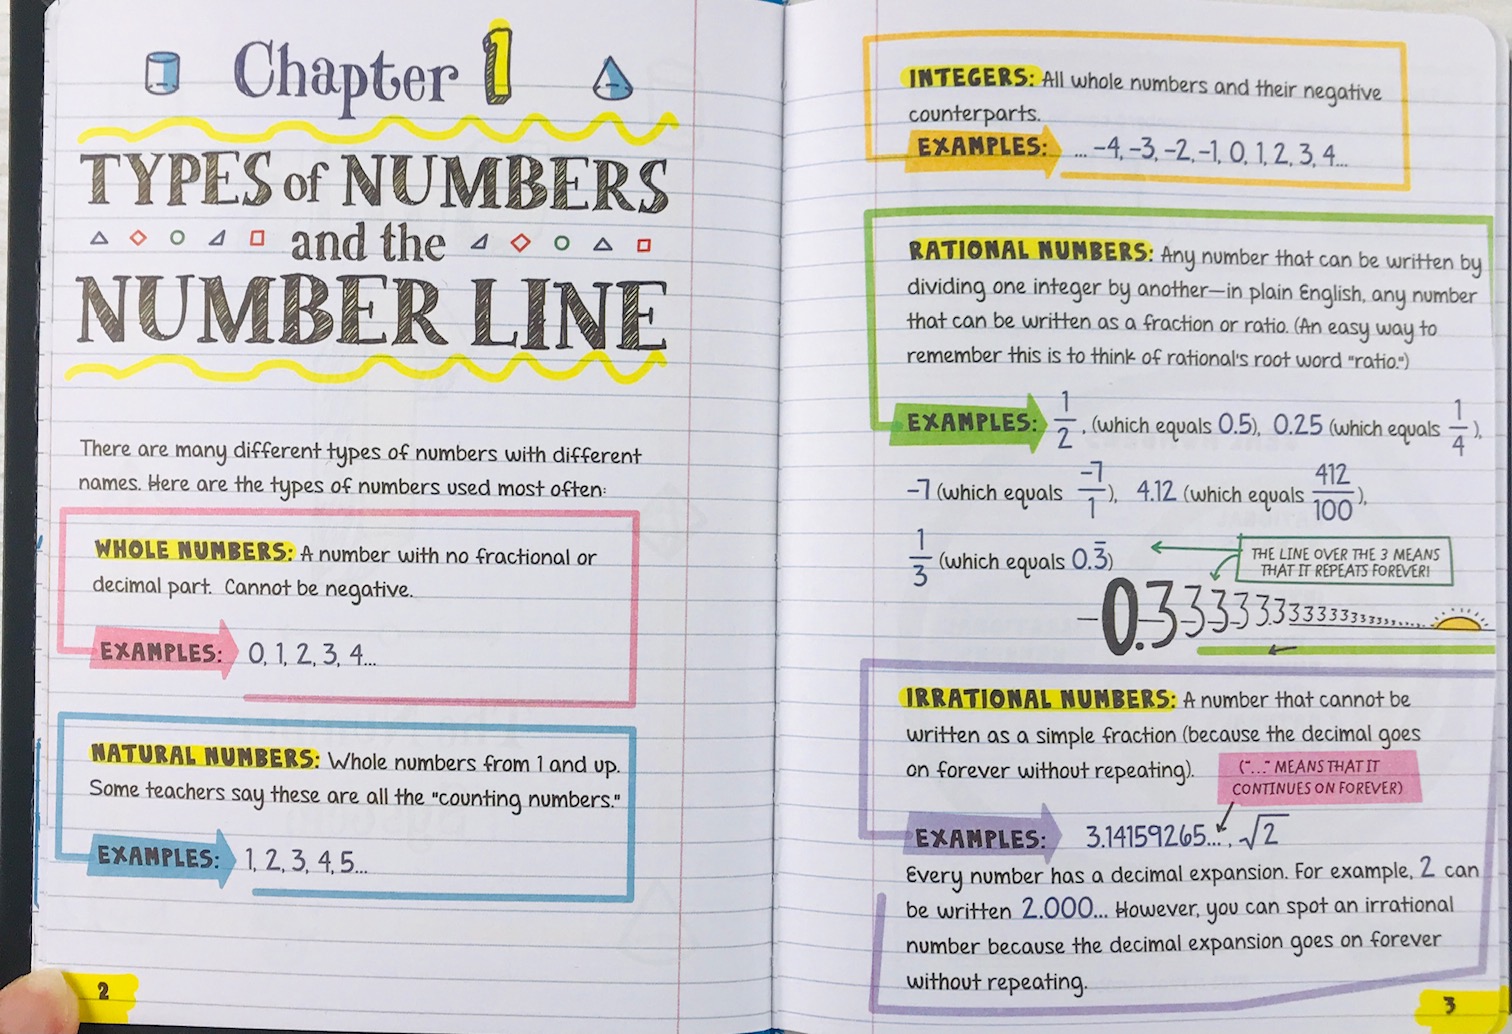 Chapter 1
TYPES of NUMBERS
and the
NUMBER LINE
There are many different types of numbers with different
names. Here are the types of numbers used most often:
WHOLE NUMBERS: A number with no fractional or
decimal part. Cannot be negative.
EXAMPLES: 0, 1, 2, 3, 4...
NATURAL NUMBERS: Whole numbers from 1 and up.
Some teachers say these are all the "counting numbers."
EXAMPLES: 1, 2, 3, 4, 5...
2
INTEGERS: All whole numbers and their negative
counterparts.
EXAMPLES: ... -4, -3, -2, -1, 0, 1, 2, 3, 4...
RATIONAL NUMBERS: Any number that can be written by
dividing one integer by another—in plain English, any number
that can be written as a fraction or ratio. (An easy way to
remember this is to think of rational's root word "ratio.")
EXAMPLES: 1/2, (which equals 0.5), 0.25 (which equals 1/4),
-7 (which equals -7/1), 4.12 (which equals 412/100),
1/3 (which equals 0.3̅)
THE LINE OVER THE 3 MEANS
THAT IT REPEATS FOREVER!
-0.333333333333333........
IRRATIONAL NUMBERS: A number that cannot be
written as a simple fraction (because the decimal goes
on forever without repeating).
("..." MEANS THAT IT
CONTINUES ON FOREVER)
EXAMPLES: 3.14159265..., √2
Every number has a decimal expansion. For example, 2 can
be written 2.000... However, you can spot an irrational
number because the decimal expansion goes on forever
without repeating.
3